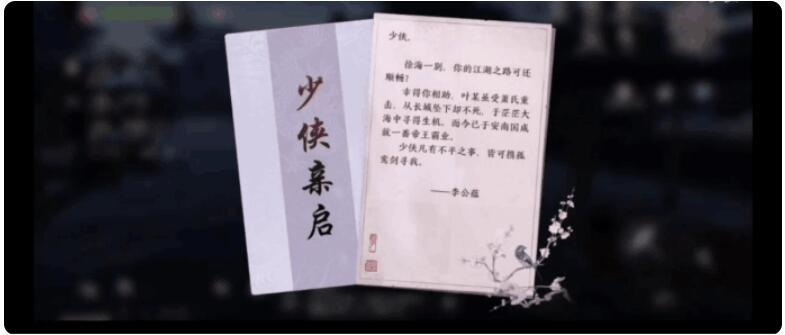 少侠亲启
少侠，
徐海一别，你的江湖之路可还
顺畅？
幸得你相助，叶某虽受萧氏重
击，从长城坠下却不死，于茫茫大
海中寻得生机。而今已于安南国成
就一番帝王霸业。
少侠凡有不平之事，皆可携孤
鸾剑寻我。
——李公蕴